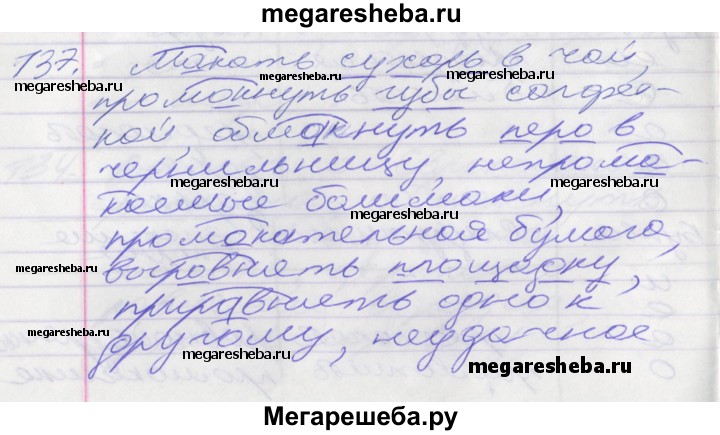 megaresheba.ru
137. Макать сухарь в чай,
промокнуть губы салфет-
кой, обмакнуть перо в
чернильницу, непрома-
каемые башмаки,
промокательная бумага,
выровнять площадку,
приравнять одно к
другому, неудачное
megaresheba.ru
megaresheba.ru
megaresheba.ru
megaresheba.ru
megaresheba.ru
megaresheba.ru
megaresheba.ru
megaresheba.ru
megaresheba.ru
megaresheba.ru
megaresheba.ru
megaresheba.ru
Мегарешеба.ру